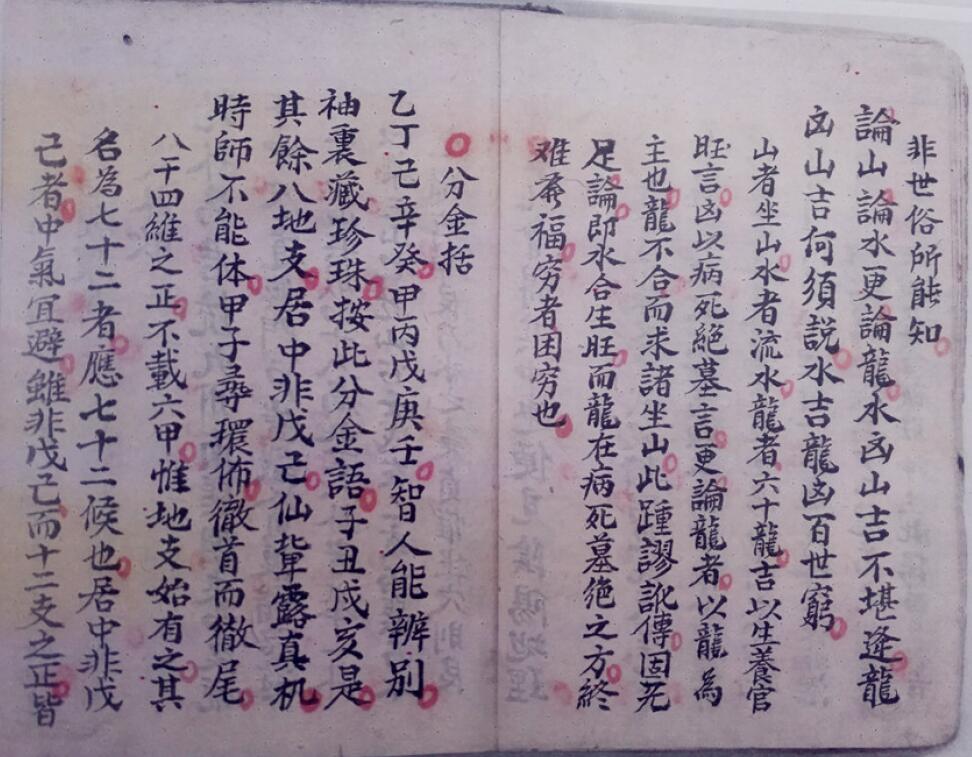 非世俗所能知
論山論水更論龍水凶山吉不堪逢龍
凶山吉何須說水吉龍凶百世窮
山者坐山水者流水龍者六十龍吉以生養官
旺言凶以病死絕墓言更論龍者以龍為
主也龍不合而求諸坐山此踵謬訛傳固无
足論即水合生旺而龍在病死墓绝之方終
难奔福穷者困穷也
分金括
乙丁己辛癸甲丙戊庚壬智人能辨别
袖裏藏珍珠按此分金語子丑戌亥是
其餘八地支居中非戊己仙輩露真机
時師不能体甲子尋環佈徹首而徹尾
八干四維之正不載六甲惟地支始有之其
名為七十二者應七十二候也居中非戊
己者中氣宜避雖非戊己而十二支之正皆